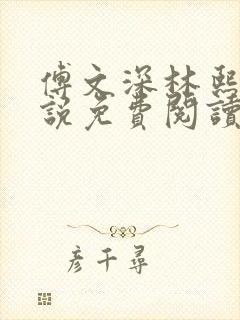 傅文深林熙
説免費閱讀
彥千尋